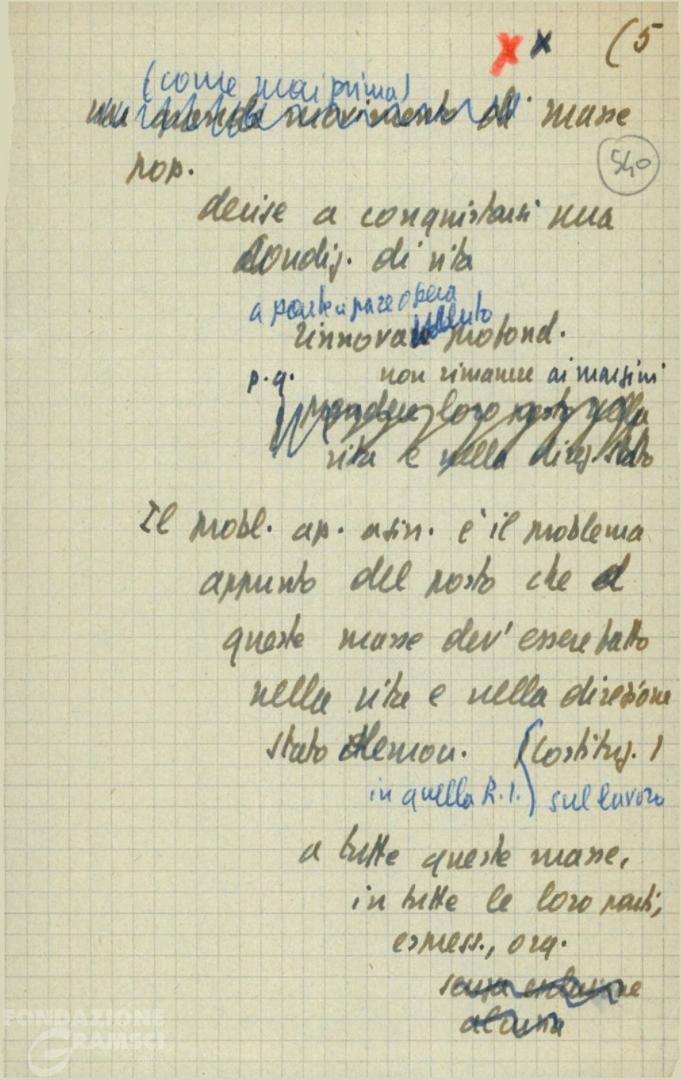 (5
(come mai prima)
un grande movimento di masse
540
pop.
decise a conquistarsi una
condiz. di vita
a partecipare opera
rinnovamento profond.
p.q. non rimanere ai margini
prendere loro posto nella
vita e nella direz. stato
Il probl. ap. a sin. è il problema
appunto del posto che a
queste masse dev' essere fatto
nella vita e nella direzione
stato democ. (Costituz. !
in quella R.I.) sul lavoro
a tutte queste masse,
in tutte le loro parti,
espress., org.
senza esclusione
alcuna
FONDAZIONE
GRAMSCI